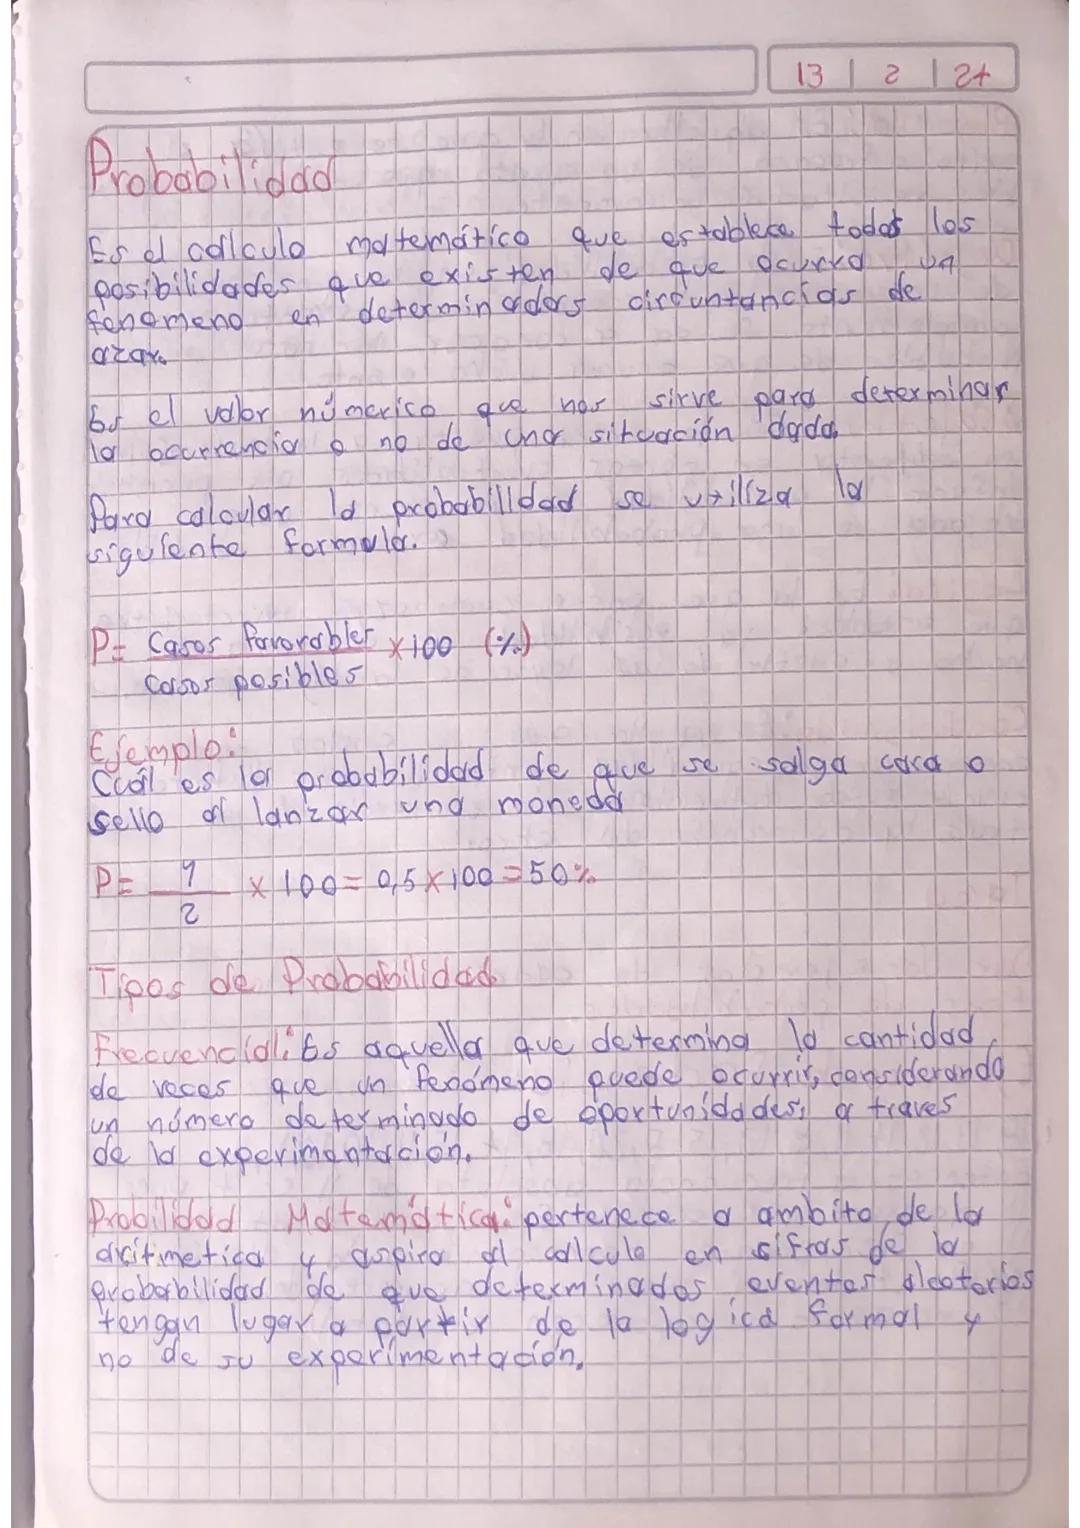 13 | 2 | 24
Probabilidad
Es el calculo matemático que establece todas los
posibilidades que existen de que ocurra un
fenomeno en determinadas circuntancias de
azar.
Es el valor númerico que nos sirve para determinar
la ocurrencia o no de una situación dada.
Para calcular la probabilidad se utiliza la
siguiente formula.
P= Casos favorables x100 (%)
Casos posibles
Ejemplo:
Cuál es la probabilidad de que se salga cara o
sello al lanzar una moneda
P= 1 x 100 = 0,5 x 100 = 50%
2
Tipos de Probabilidad
Frecuencial: Es aquella que determina la cantidad
de veces que un fenómeno puede ocurrir, considerando
un número determinado de oportunidades, a traves
de la experimentación.
Probilidad Matemática: pertenece a ambito de la
aritmetica y aspira al calculo en sifras de la
probabilidad de que determinados eventos aleatorios
tengan lugar a partir de la logica formal y
no de su experimentación.